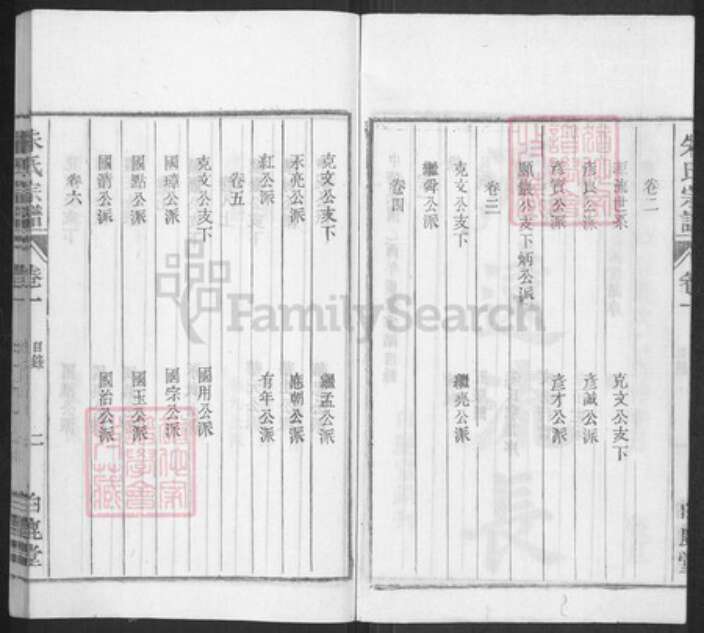 朱氏宗譜
卷一
卷二
克文公支下
彥良公派
彥誠公派
彥賓公派
彥才公派
顯鎮公支下炳公派
卷三
克文公支下
繼堯公派
繼舜公派
卷四
克文公支下
繼孟公派
永亮公派
應朝公派
紅公派
有年公派
卷五
克文公支下
國用公派
國璋公派
國宗公派
國點公派
國玉公派
國清公派
國治公派
卷六
朱氏宗譜
卷一
目錄
二
白鹿堂
FamilySearch